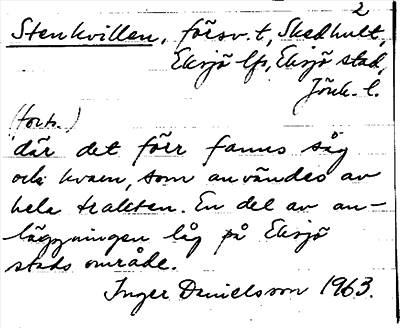 2
Stenkvillen, försv.t, Skedhult,
Eksjö lfs, Eksjö stad,
Jönk. l.
(forts.)
där det förr fanns såg
och kvarn, som användes av
hela trakten. En del av an-
läggningen låg på Eksjö
stads område.
Inger Danielsson 1963.